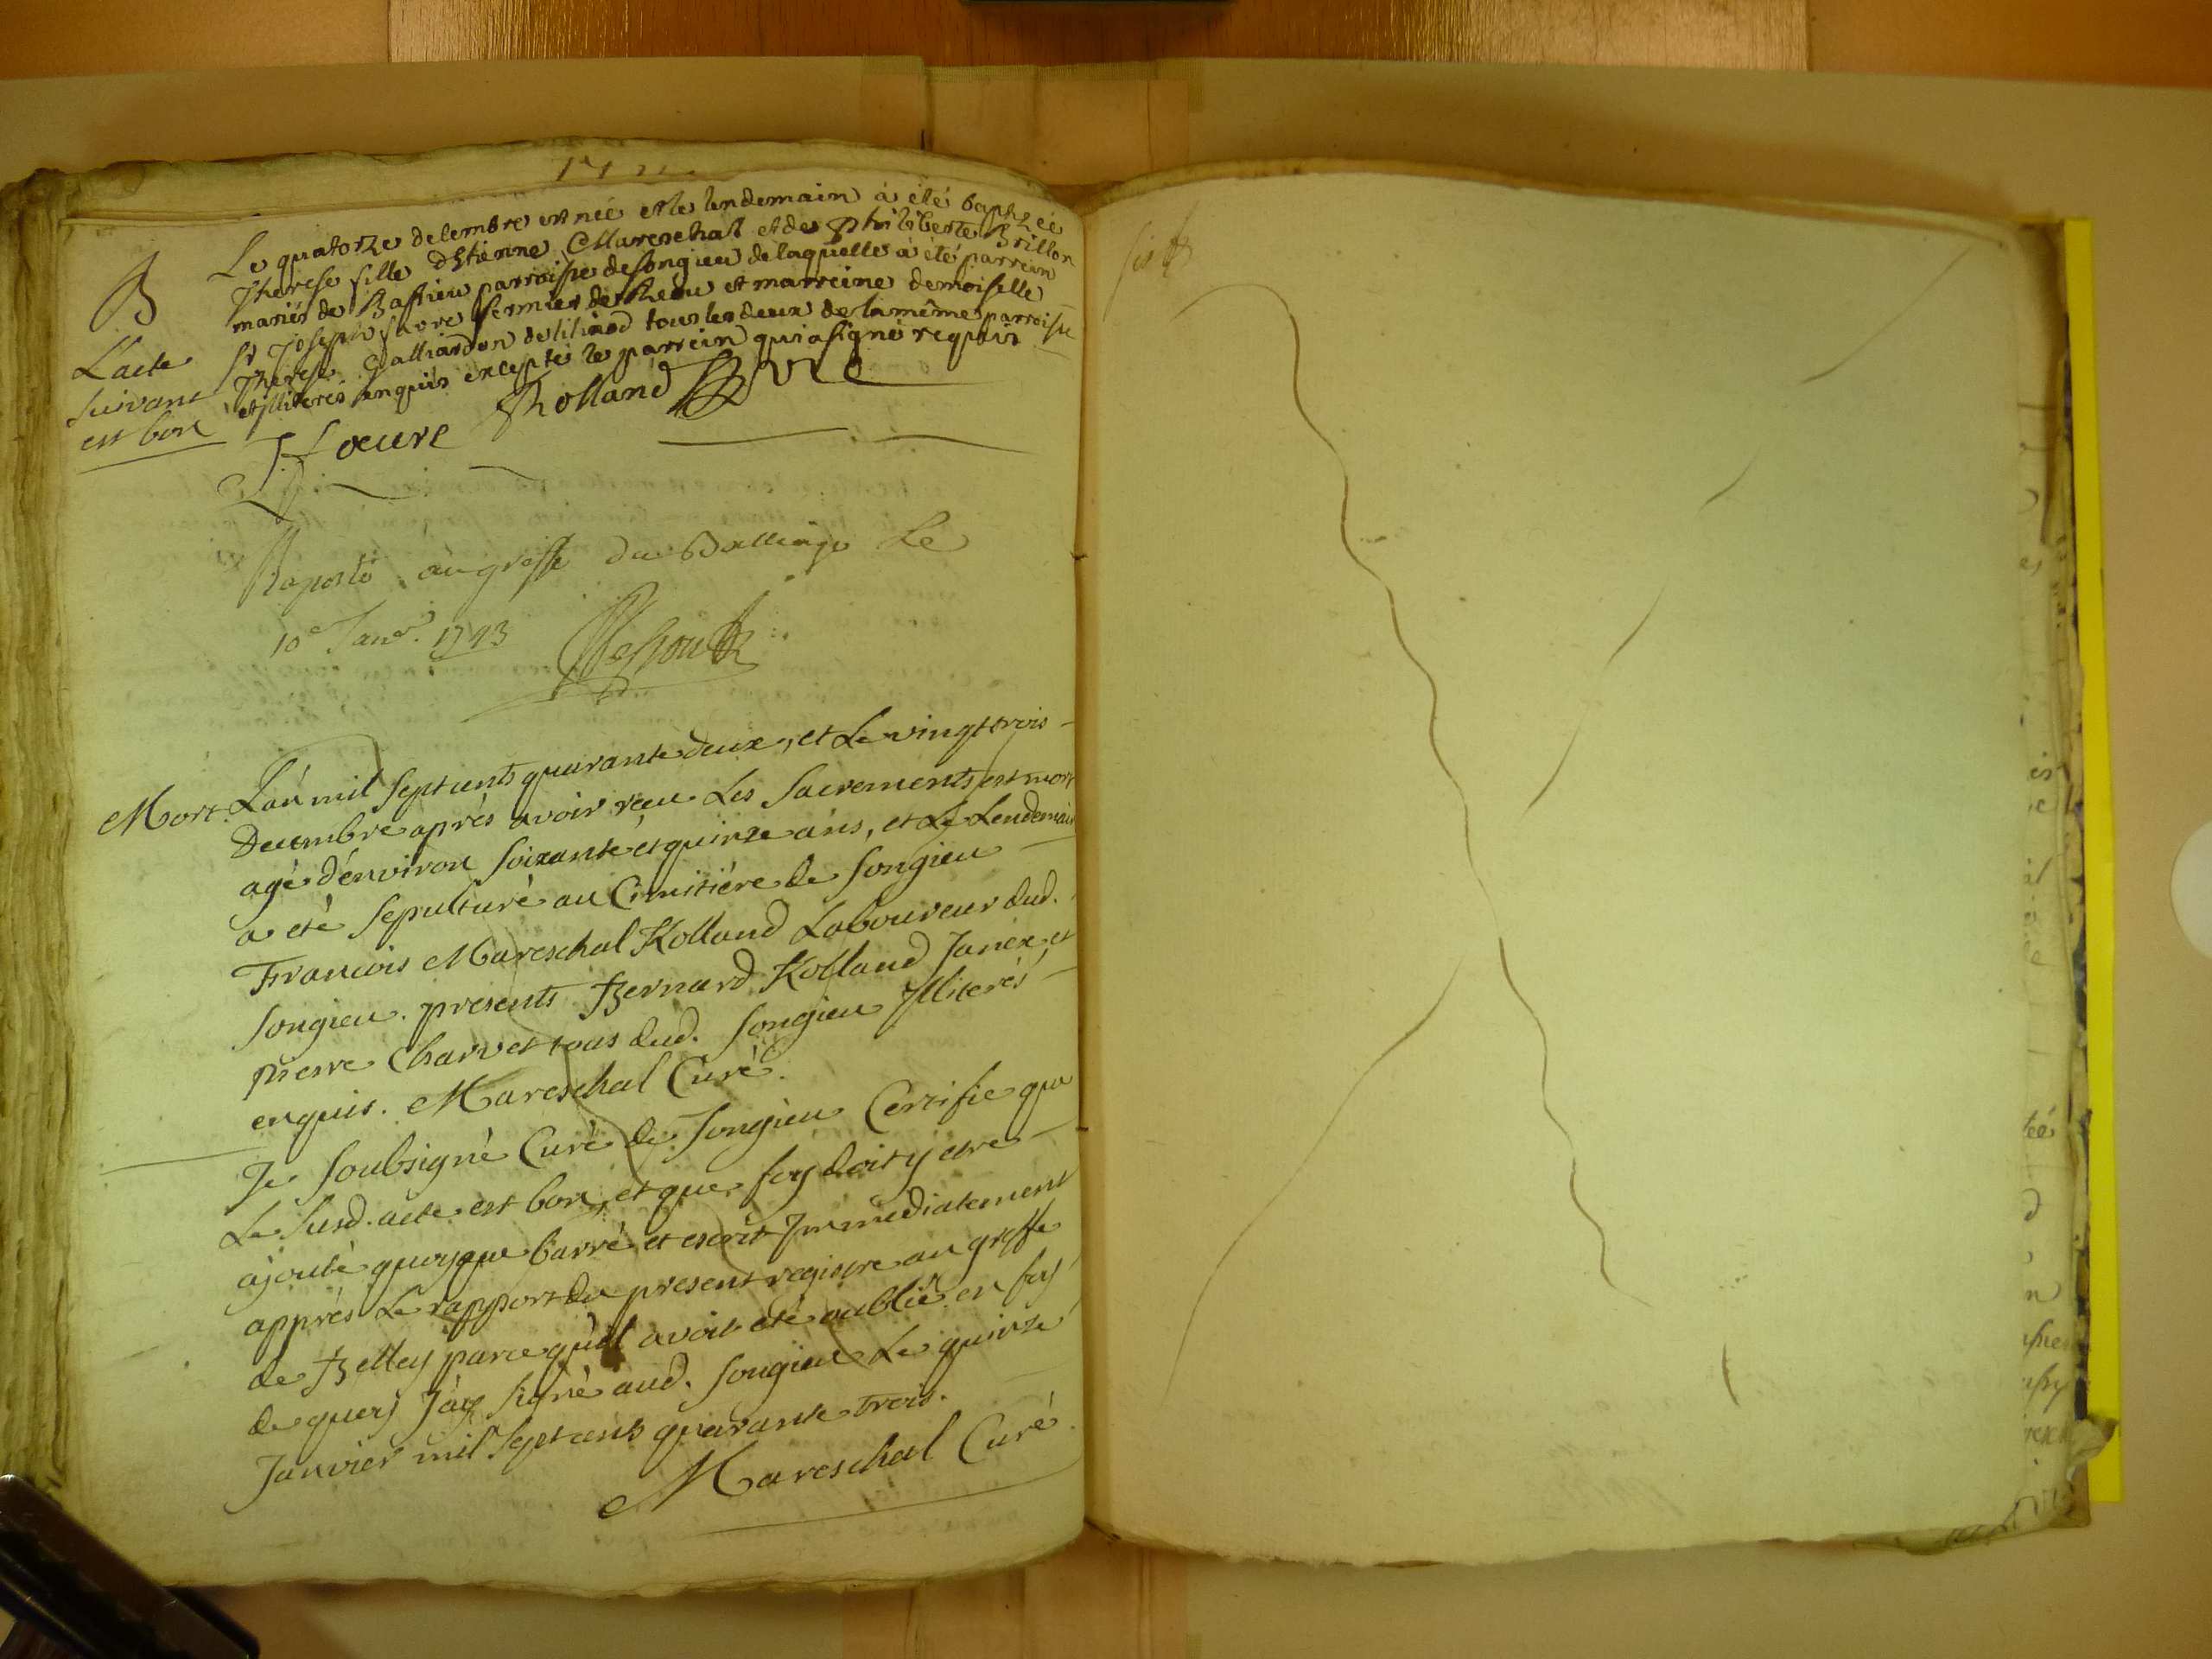 B
Le quatorze decembre est née et le lendemain à été baptizée
Therese fille d'Etienne Mareschal et de Philiberte Brillon
mariés de Bassieu parroisse de songieu de laquelle à été parrein
Sr Joseph favre fermier de et marreine demoiselle
Therese Galliardon de tous les deux de la même parroisse
et illiterés enquis exceptés le parrein qui a signé requis
Rolland
L'acte
suivant
est bon
Raporté au greffe du Balliage Le
10e Janer. 1743
Mort. L'an mil sept cents quarante deux, et Le vingt trois
Decembre après avoir recu Les Sacrements est mort
agé d'environ soixante et quinze ans, et Le Lendemain
a eté sepulturé au Cimitière de songieu
Francois Mareschal Rolland Laboureur dud.
songieu. presents Bernard Rolland Janex et
pierre Charvet tous dud. songieu Illiterés
enquis. Mareschal Curé.
Je soubsigné Curé de songieu Certifie que
Le susd. acte est bon, et que foy doit y etre
ajouté quoyque barré et escrit Immediatement
apprés Le rapport du present registre au greffe
de Belley parce qu'il avoit eté oublié en foy
de quoy J'ay signé aud. songieu Le quinze
Janvier mil sept cents quarante trois.
Mareschal Curé